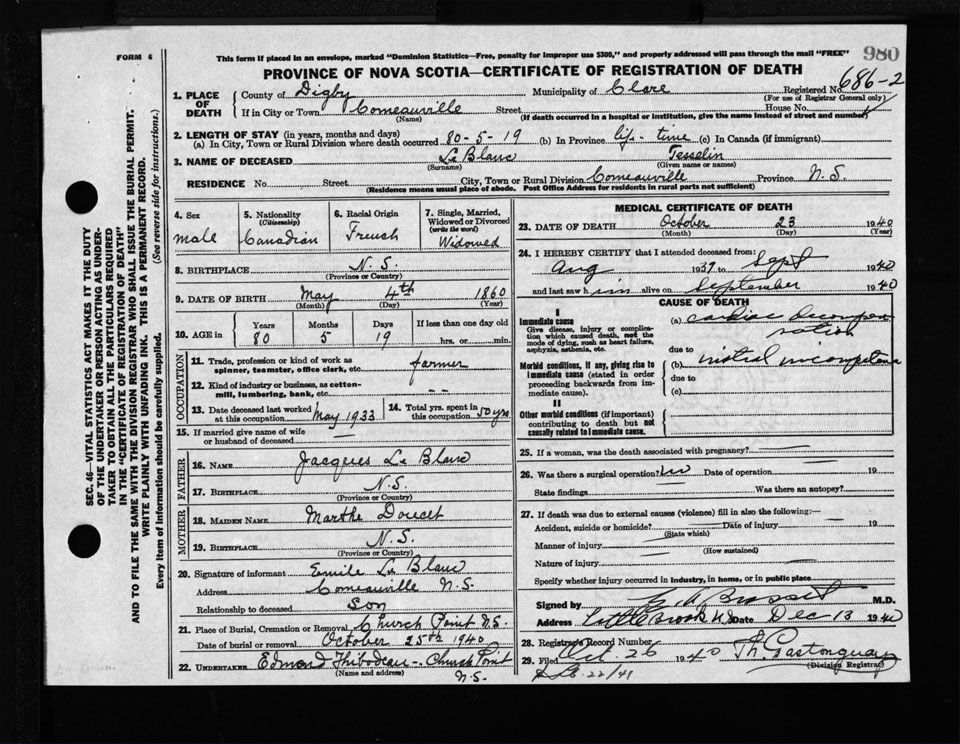 This form if placed in an envelope, marked "Dominion Statistics—Free, penalty for improper use $300," and properly addressed will pass through the mail "FREE"
FORM 6
980
PROVINCE OF NOVA SCOTIA—CERTIFICATE OF REGISTRATION OF DEATH
686-2
1. PLACE OF DEATH
County of Digby Municipality of Clare Registered No.
(For use of Registrar General only)
If in City or Town Comeauville Street House No.
(Name) (If death occurred in a hospital or institution, give the name instead of street and number)
2. LENGTH OF STAY (in years, months and days)
(a) In City, Town or Rural Division where death occurred 80-5-19 (b) In Province life-time (c) In Canada (if immigrant)
3. NAME OF DECEASED Le Blanc
(Surname) (Given name or names)
RESIDENCE No. Street City, Town or Rural Division Comeauville Province N.S.
(Residence means usual place of abode. Post Office Address for residents in rural parts not sufficient)
4. Sex
male
5. Nationality
(Citizenship)
Canadian
6. Racial Origin
French
7. Single, Married, Widowed or Divorced
(write the word)
Widowed
8. BIRTHPLACE N.S.
(Province or Country)
9. DATE OF BIRTH May 4th 1860
(Month) (Day) (Year)
10. AGE in
Years Months Days If less than one day old
80 5 19 hrs. or min.
OCCUPATION
11. Trade, profession or kind of work as
spinner, teamster, office clerk, etc. farmer
12. Kind of industry or business, as cotton-
mill, lumbering, bank, etc. --
13. Date deceased last worked
at this occupation May 1933
14. Total yrs. spent in
this occupation 50 yrs
15. If married give name of wife
or husband of deceased —
FATHER
16. NAME Jacques Le Blanc
17. BIRTHPLACE N.S.
(Province or Country)
MOTHER
18. MAIDEN NAME Marthe Doucet
19. BIRTHPLACE N.S.
(Province or Country)
20. Signature of informant Emile Le Blanc
Address Comeauville N.S.
Relationship to deceased Son
21. Place of Burial, Cremation or Removal Church Point N.S.
Date of burial or removal October 25th 1940
22. UNDERTAKER Edmond Thibodeau - Church Point
(Name and address) N.S.
MEDICAL CERTIFICATE OF DEATH
23. DATE OF DEATH October 23 1940
(Month) (Day) (Year)
24. I HEREBY CERTIFY that I attended deceased from:
Aug 1937 to Sept 1940
and last saw him alive on September 1940
CAUSE OF DEATH
I
Immediate cause
Give disease, injury or complication which caused death, not the mode of dying, such as heart failure, asphyxia, asthenia, etc.
(a) cardiac decompensation
due to
Morbid conditions, if any, giving rise to immediate cause (stated in order proceeding backwards from immediate cause).
(b) mitral incompetence
due to
(c)
II
Other morbid conditions (if important) contributing to death but not causally related to immediate cause.
25. If a woman, was the death associated with pregnancy?
26. Was there a surgical operation? no Date of operation 19
State findings Was there an autopsy?
27. If death was due to external causes (violence) fill in also the following:—
Accident, suicide or homicide? Date of injury 19
(State which)
Manner of injury
(How sustained)
Nature of injury
Specify whether injury occurred in industry, in home, or in public place
Signed by M.D.
Address Little Brook N.S. Date Dec 13 1940
28. Registrar's Record Number
29. Filed Oct. 26 1940
(Division Registrar)
22/41
SEC. 46—VITAL STATISTICS ACT MAKES IT THE DUTY
OF THE UNDERTAKER OR PERSON ACTING AS UNDER-
TAKER TO OBTAIN ALL THE PARTICULARS REQUIRED
IN THE "CERTIFICATE OF REGISTRATION OF DEATH"
AND TO FILE THE SAME WITH THE DIVISION REGISTRAR WHO SHALL ISSUE THE BURIAL PERMIT.
WRITE PLAINLY WITH UNFADING INK. THIS IS A PERMANENT RECORD.
Every item of information should be carefully supplied. (See reverse side for instructions.)